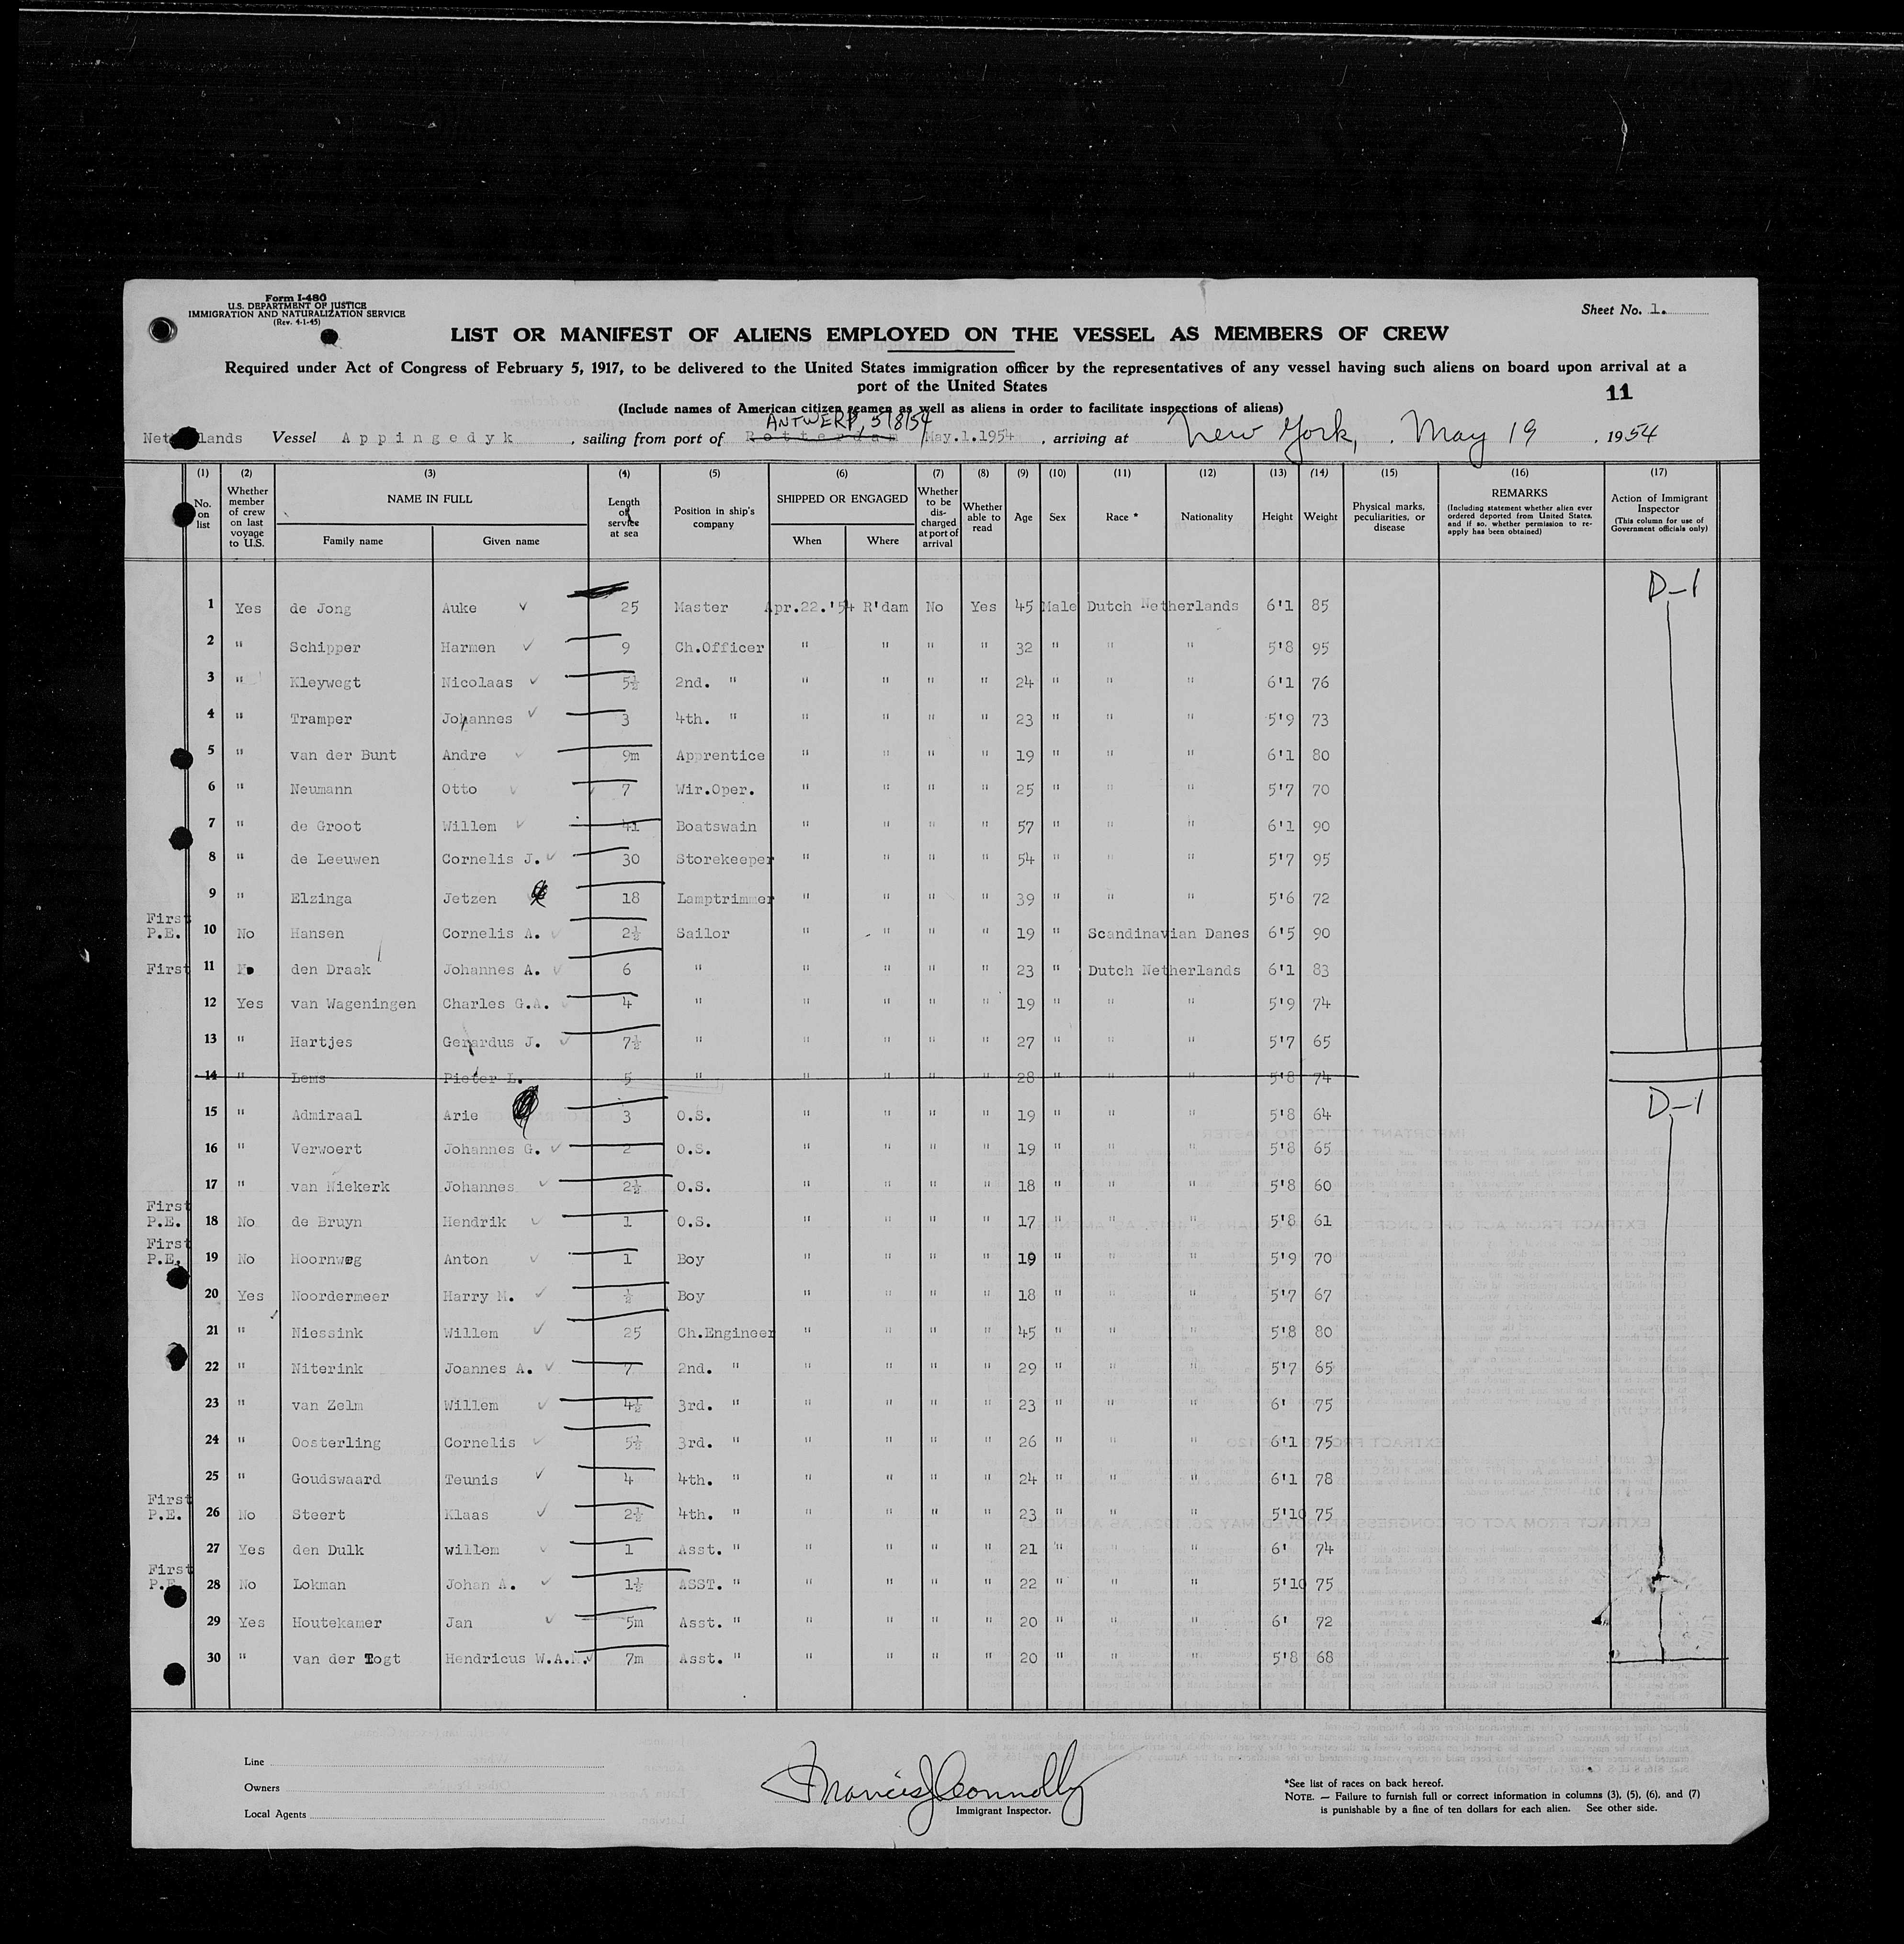 Form I-480
U.S. DEPARTMENT OF JUSTICE
IMMIGRATION AND NATURALIZATION SERVICE
(Rev. 4-1-45)
Sheet No. 1.
LIST OR MANIFEST OF ALIENS EMPLOYED ON THE VESSEL AS MEMBERS OF CREW
Required under Act of Congress of February 5, 1917, to be delivered to the United States immigration officer by the representatives of any vessel having such aliens on board upon arrival at a
port of the United States
11
(Include names of American citizen seamen as well as aliens in order to facilitate inspections of aliens)
ANTWERP, 5/8/54
Netherlands Vessel Appingedyk, sailing from port of Rotterdam May.1.1954, arriving at New York, May 19, 1954
(1) (2) (3) (4) (5) (6) (7) (8) (9) (10) (11) (12) (13) (14) (15) (16) (17)
No. on list
Whether member of crew on last voyage to U.S.
NAME IN FULL
Family name Given name
Length of service at sea
Position in ship's company
SHIPPED OR ENGAGED
When Where
Whether to be discharged at port of arrival
Whether able to read
Age Sex Race * Nationality Height Weight
Physical marks, peculiarities, or disease
REMARKS
(Including statement whether alien ever ordered deported from United States, and if so, whether permission to re-apply has been obtained)
Action of Immigrant Inspector
(This column for use of Government officials only)
D-1
1 Yes de Jong Auke 25 Master Apr.22.'54 R'dam No Yes 45 Male Dutch Netherlands 6'1 85
2 " Schipper Harmen 9 Ch.Officer " " " " 32 " " " 5'8 95
3 " Kleywegt Nicolaas 5½ 2nd. " " " " " 24 " " " 6'1 76
4 " Tramper Johannes 3 4th. " " " " " 23 " " " 5'9 73
5 " van der Bunt Andre 9m Apprentice " " " " 19 " " " 6'1 80
6 " Neumann Otto 7 Wir.Oper. " " " " 25 " " " 5'7 70
7 " de Groot Willem 41 Boatswain " " " " 57 " " " 6'1 90
8 " de Leeuwen Cornelis J. 30 Storekeeper " " " " 54 " " " 5'7 95
9 " Elzinga Jetzen 18 Lamptrimmer " " " " 39 " " " 5'6 72
First
P.E. 10 No Hansen Cornelis A. 2½ Sailor " " " " 19 " Scandinavian Danes 6'5 90
First 11 No den Draak Johannes A. 6 " " " " " 23 " Dutch Netherlands 6'1 83
12 Yes van Wageningen Charles G.A. 4 " " " " " 19 " " " 5'9 74
13 " Hartjes Gerardus J. 7½ " " " " " 27 " " " 5'7 65
14 " Lems Pieter L. 5 " " " " " 28 " " " 5'8 74
D-1
15 " Admiraal Arie 3 O.S. " " " " 19 " " " 5'8 64
16 " Verwoert Johannes G. 2 O.S. " " " " 19 " " " 5'8 65
17 " van Niekerk Johannes 2½ O.S. " " " " 18 " " " 5'8 60
First
P.E. 18 No de Bruyn Hendrik 1 O.S. " " " " 17 " " " 5'8 61
First
P.E. 19 No Hoornweg Anton 1 Boy " " " " 19 " " " 5'9 70
20 Yes Noordermeer Harry M. ½ Boy " " " " 18 " " " 5'7 67
21 " Niessink Willem 25 Ch.Engineer " " " " 45 " " " 5'8 80
22 " Niterink Joannes A. 7 2nd. " " " " " 29 " " " 5'7 65
23 " van Zelm Willem 4½ 3rd. " " " " " 23 " " " 6' 75
24 " Oosterling Cornelis 5½ 3rd. " " " " " 26 " " " 6'1 75
25 " Goudswaard Teunis 4 4th. " " " " " 24 " " " 6'1 78
First
P.E. 26 No Steert Klaas 2½ 4th. " " " " " 23 " " " 5'10 75
27 Yes den Dulk willem 1 Asst. " " " " " 21 " " " 6' 74
First
P.E. 28 No Lokman Johan A. 1½ ASST. " " " " " 22 " " " 5'10 75
29 Yes Houtekamer Jan 5m Asst. " " " " " 20 " " " 6' 72
30 " van der Togt Hendricus W.A. 7m Asst. " " " " " 20 " " " 5'8 68
Line
Owners
Local Agents
Francis J Connolly
Immigrant Inspector.
*See list of races on back hereof.
NOTE. — Failure to furnish full or correct information in columns (3), (5), (6), and (7)
is punishable by a fine of ten dollars for each alien. See other side.